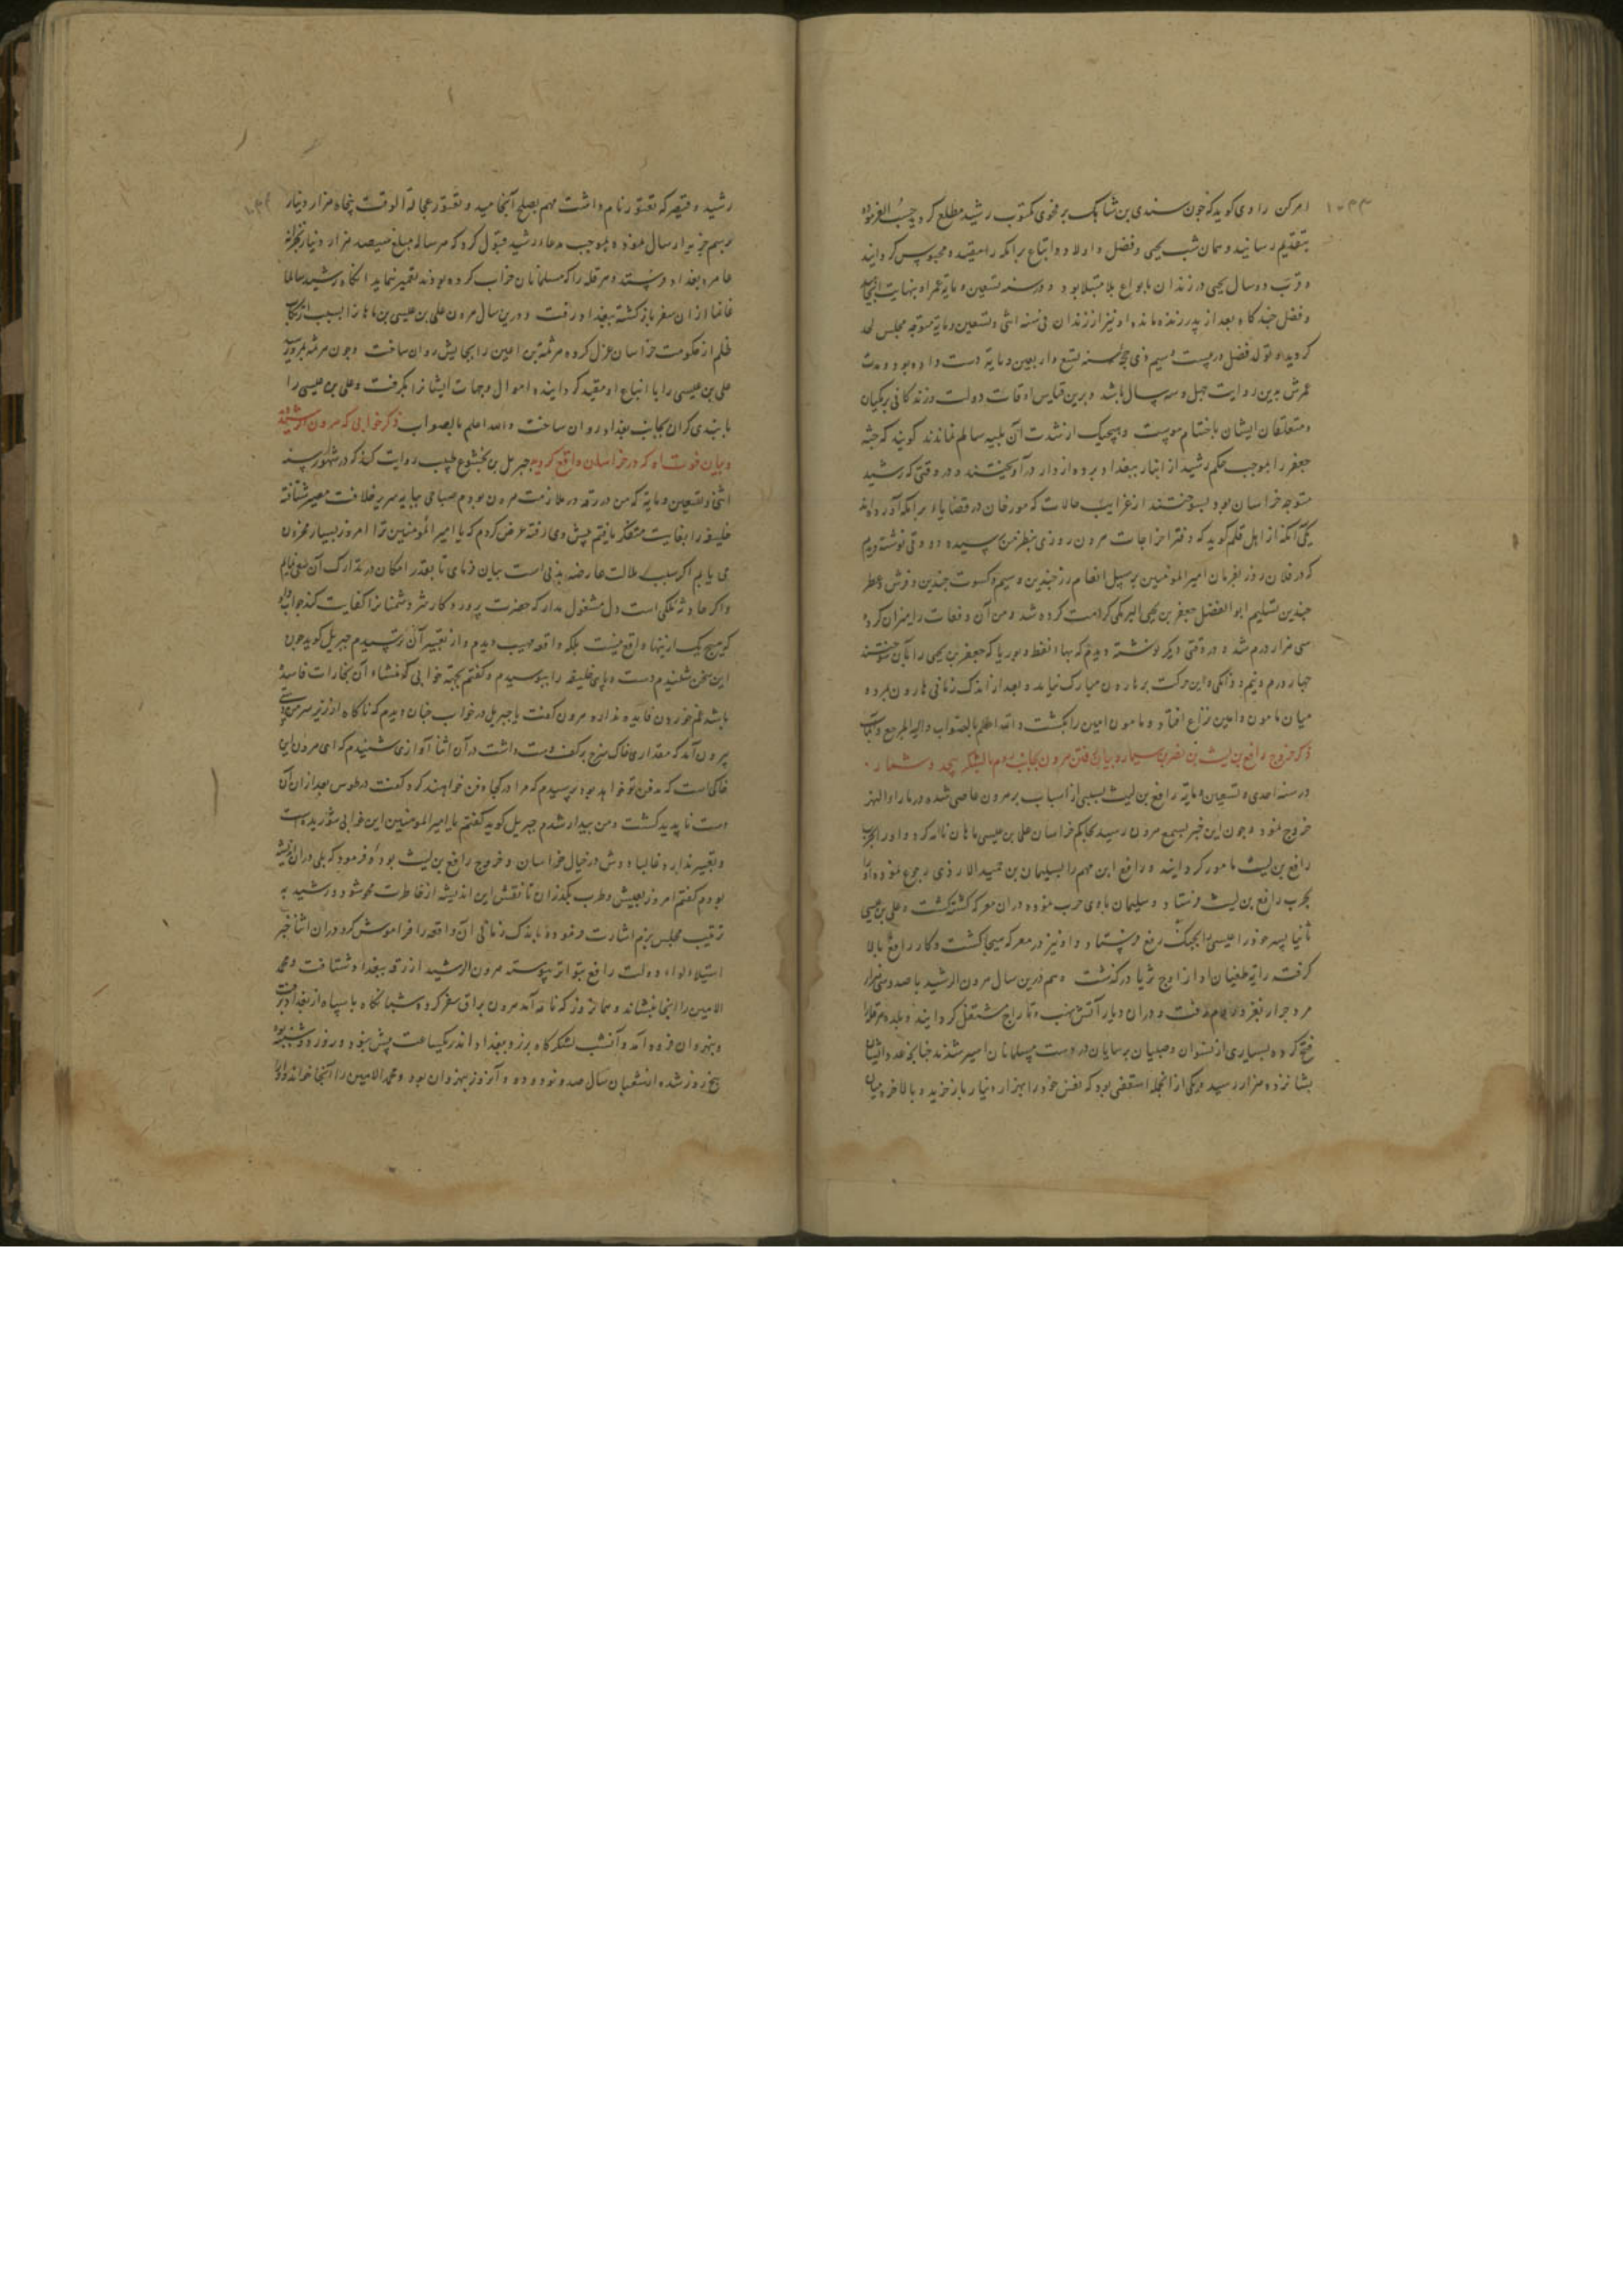 ۱۰۳۳
امر کن راوی کوید که چون سندی بن شاهک بر فحوی مکتوب رشید مطلع کردید حسب الفرموده
بتقدیم رسانید و همان شب یحیی و فضل و اولاد و اتباع برامکه را مقید و محبوس کردانید
و قرب دو سال یحیی در زندان بانواع بلا مبتلا بود و در سنه تسعین و مایة عمر او بنهایت انجامید
و فضل چند کاه بعد از پدر زنده مانده او نیز از زندان فی سنه اثنی و تسعین و مایة متوجه مجلس لحد
کردید و تولد فضل در بیست و سیم ذی حجه سنه تسع و اربعین و مایة دست داده بود و مدت
عمرش بدین روایت چهل و سه سال باشد و برین قیاس اوقات دولت و زندکانی برمکیان
و متعلقان ایشان باختتام پیوست و هیچیک از شدت آن بلیه سالم نماندند کویند که جثه
جعفر را بموجب حکم رشید از انبار ببغداد برده از دار درآویختند و در وقتی که رشید
متوجه خراسان بود بسوختند از غرایب حالات که مورخان در قضایاء برامکه آورده اند
یکی آنکه از اهل قلم کوید که دفتر اخراجات هرون روزی بنظر من رسیده در ورقی نوشته دیدم
که در فلان روز بفرمان امیر المومنین بر سبیل انعام زر چندین و سیم و کسوت چندین و فرش و عطر
چندین تسلیم ابو الفضل جعفر بن یحیی البرمکی کرامت کرده شد و من آن دفعات را میزان کرده
سی هزار درم شد و در ورقی دیکر نوشته دیدم که بهاء نفط و بوریا که جعفر بن یحیی را بآن سوختند
چهار درم و نیم و دانکی و این حرکت بر هارون مبارک نیامد و بعد از اندک زمانی هارون بمرد و
میان مامون و امین نزاع افتاد و مامون امین را بکشت والله اعلم بالصواب والیه المرجع والمآب
ذکر خروج رافع بن لیث بن نصر بن سیار و بیان رفتن هرون بجانب روم با لشکر بیحد و شمار
در سنه احدی و تسعین و مایة رافع بن لیث بسببی از اسباب بر هرون عاصی شده در ماوراء النهر
خروج نمود و چون این خبر بسمع هرون رسید بحاکم خراسان علی بن عیسی ماهان نامه کرد و او را بحرب
رافع بن لیث مامور کردانید و رافع این مهم را بسلیمان بن حمید الازدی رجوع نموده او را
بحرب رافع بن لیث فرستاد و سلیمان با وی حرب نموده در ان معرکه کشته کشت و علی بن عیسی
ثانیا پسر خود را عیسی بجنک رافع فرستاد و او نیز در معرکه هیجا کشت و کار رافع بالا
کرفت رایة طغیان او از اوج ثریا درکذشت و هم درین سال هرون الرشید با صد و سی هزار
مرد جرار بغزو روم رفت و در ان دیار آتش نهب و تاراج مشتعل کردانید و بلده هرقله را
فتح کرده بسیاری از نسوان و صبیان ترسایان در دست مسلمانان اسیر شدند چنانچه عدد ایشان
بشانزده هزار رسید و یکی از انجمله اسقفی بود که نفس خود را بهزار دینار باز خرید و بالاخره میان
رشید و قیصر که تعفور نام داشت مهم بصلح انجامید و تعفور عجالة الوقت پنجاه هزار دینار
برسم جزیه ارسال نموده بموجب مدعاء رشید قبول کرد که هر ساله مبلغ سیصد هزار دینار بخزانه
عامره بغداد فرستد و هر قلعه را که مسلمانان خراب کرده بودند تعمیر ننماید انکاه رشید سالما
غانما از ان سفر باز کشته ببغداد رفت و درین سال هرون علی بن عیسی بن ماهان را بسبب ارتکاب
ظلم از حکومت خراسان عزل کرده هرثمة بن اعین را بجایش روان ساخت و چون هرثمه بمرو رسید
علی بن عیسی را با اتباع او مقید کردانیده اموال و جهات ایشانرا بکرفت و علی بن عیسی را
با بندی کران بجانب بغداد روان ساخت والله اعلم بالصواب ذکر خوابی که هرون الرشید دید
و بیان فوت شاه که در خراسان واقع کردید جبریل بن بختشوع طبیب روایت کند که در شهور سنه
اثنی و تسعین و مایة که من در رقه در ملازمت هرون بودم صباحی بپایه سریر خلافت مصیر شتافته
خلیفه را بغایت متفکر یافتم پیش وی رفته عرض کردم که یا امیر المومنین ترا امروز بسیار محزون
می یابم اکر سبب ملالت عارضه بدنی است بیان فرمای تا بقدر امکان در تدارک آن سعی نمایم
و اکر حادثه ملکی است دل مشغول مدار که حضرت پروردکار شر دشمنانرا کفایت کند جواب داد
که هیچ یک ازینها واقع نیست بلکه واقعه مهیب دیدم و از تعبیر آن ترسیدم جبریل کوید چون
این سخن شنیدم دست و پای خلیفه را ببوسیدم و کفتم بجهة خوابی که منشاء آن بخارات فاسد
باشد غم خوردن فایده ندارد هرون کفت یا جبریل در خواب چنان دیدم که ناکاه از زیر سر من دستی
بیرون آمد که مقداری خاک سرخ بر کف دست داشت در آن اثنا آوازی شنیدم که ای هرون این
خاکی است که مدفن تو خواهد بود پرسیدم که مرا در کجا دفن خواهند کرد کفت در طوس بعد از ان آن
دست ناپدید کشت و من بیدار شدم جبریل کوید کفتم یا امیر المومنین این خوابی شوریده است
و تعبیر ندارد غالبا دوش در خیال خراسان و خروج رافع بن لیث بوده فرمود که بلی در ان اندیشه
بودم کفتم امروز بعیش و طرب بکذران تا نقش این اندیشه از خاطرت محو شود و رشید به
ترتیب مجلس بزم اشارت فرموده باندک زمانی آن واقعه را فراموش کرد در ان اثنا خبر
استیلاء لواء دولت رافع بتواتر پیوسته هرون الرشید از رقه ببغداد شتافت و محمد
الامین را انجا بنشاند و همان روز که نامه آمد هرون یراق سفر کرده شبانکاه با سپاه از بغداد برفت
و بنهروان فرود آمد و آنشب لشکرکاه بزد و ببغداد اندر یکساعت بیش نبود و روز دوشنبه بود
پنج روز شده از شعبان سال صد و نود و دو و آنروز بنهروان بود و محمد الامین را آنجا خواند و او را